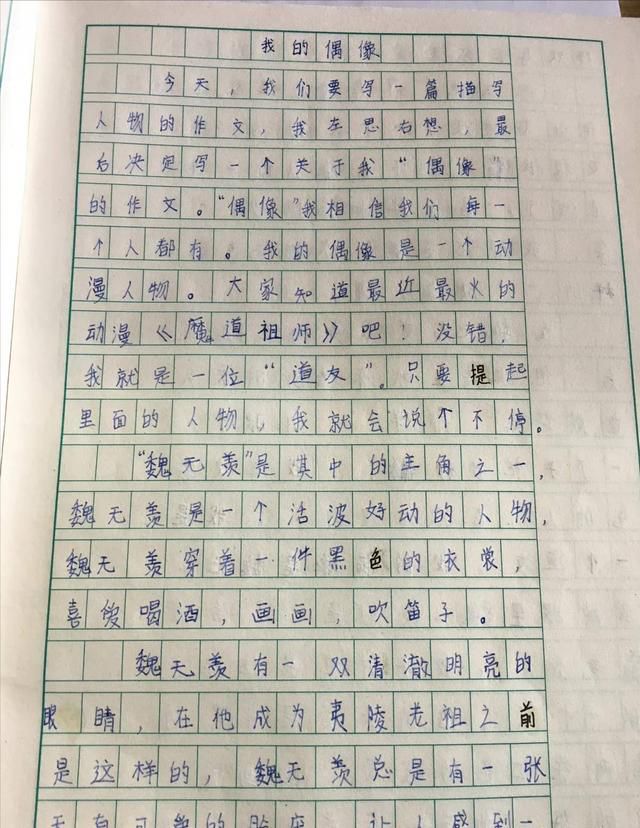 我的偶像
今天，我们要写一篇描写
人物的作文，我左思右想，最
后决定写一个关于我“偶像”
的作文。“偶像”我相信我们每一
个人都有。我的偶像是一个动
漫人物。大家知道最近最火的
动漫《魔道祖师》吧！没错！
我就是一位“道友”。只要提起
里面的人物，我就会说个不停。
“魏无羡”是其中的主角之一，
魏无羡是一个活波好动的人物，
魏无羡穿着一件黑色的衣裳，
喜爱喝酒，画画，吹笛子。
魏无羡有一双清澈明亮的
眼睛，在他成为夷陵老祖之前
是这样的，魏无羡总是有一张
让人感到一